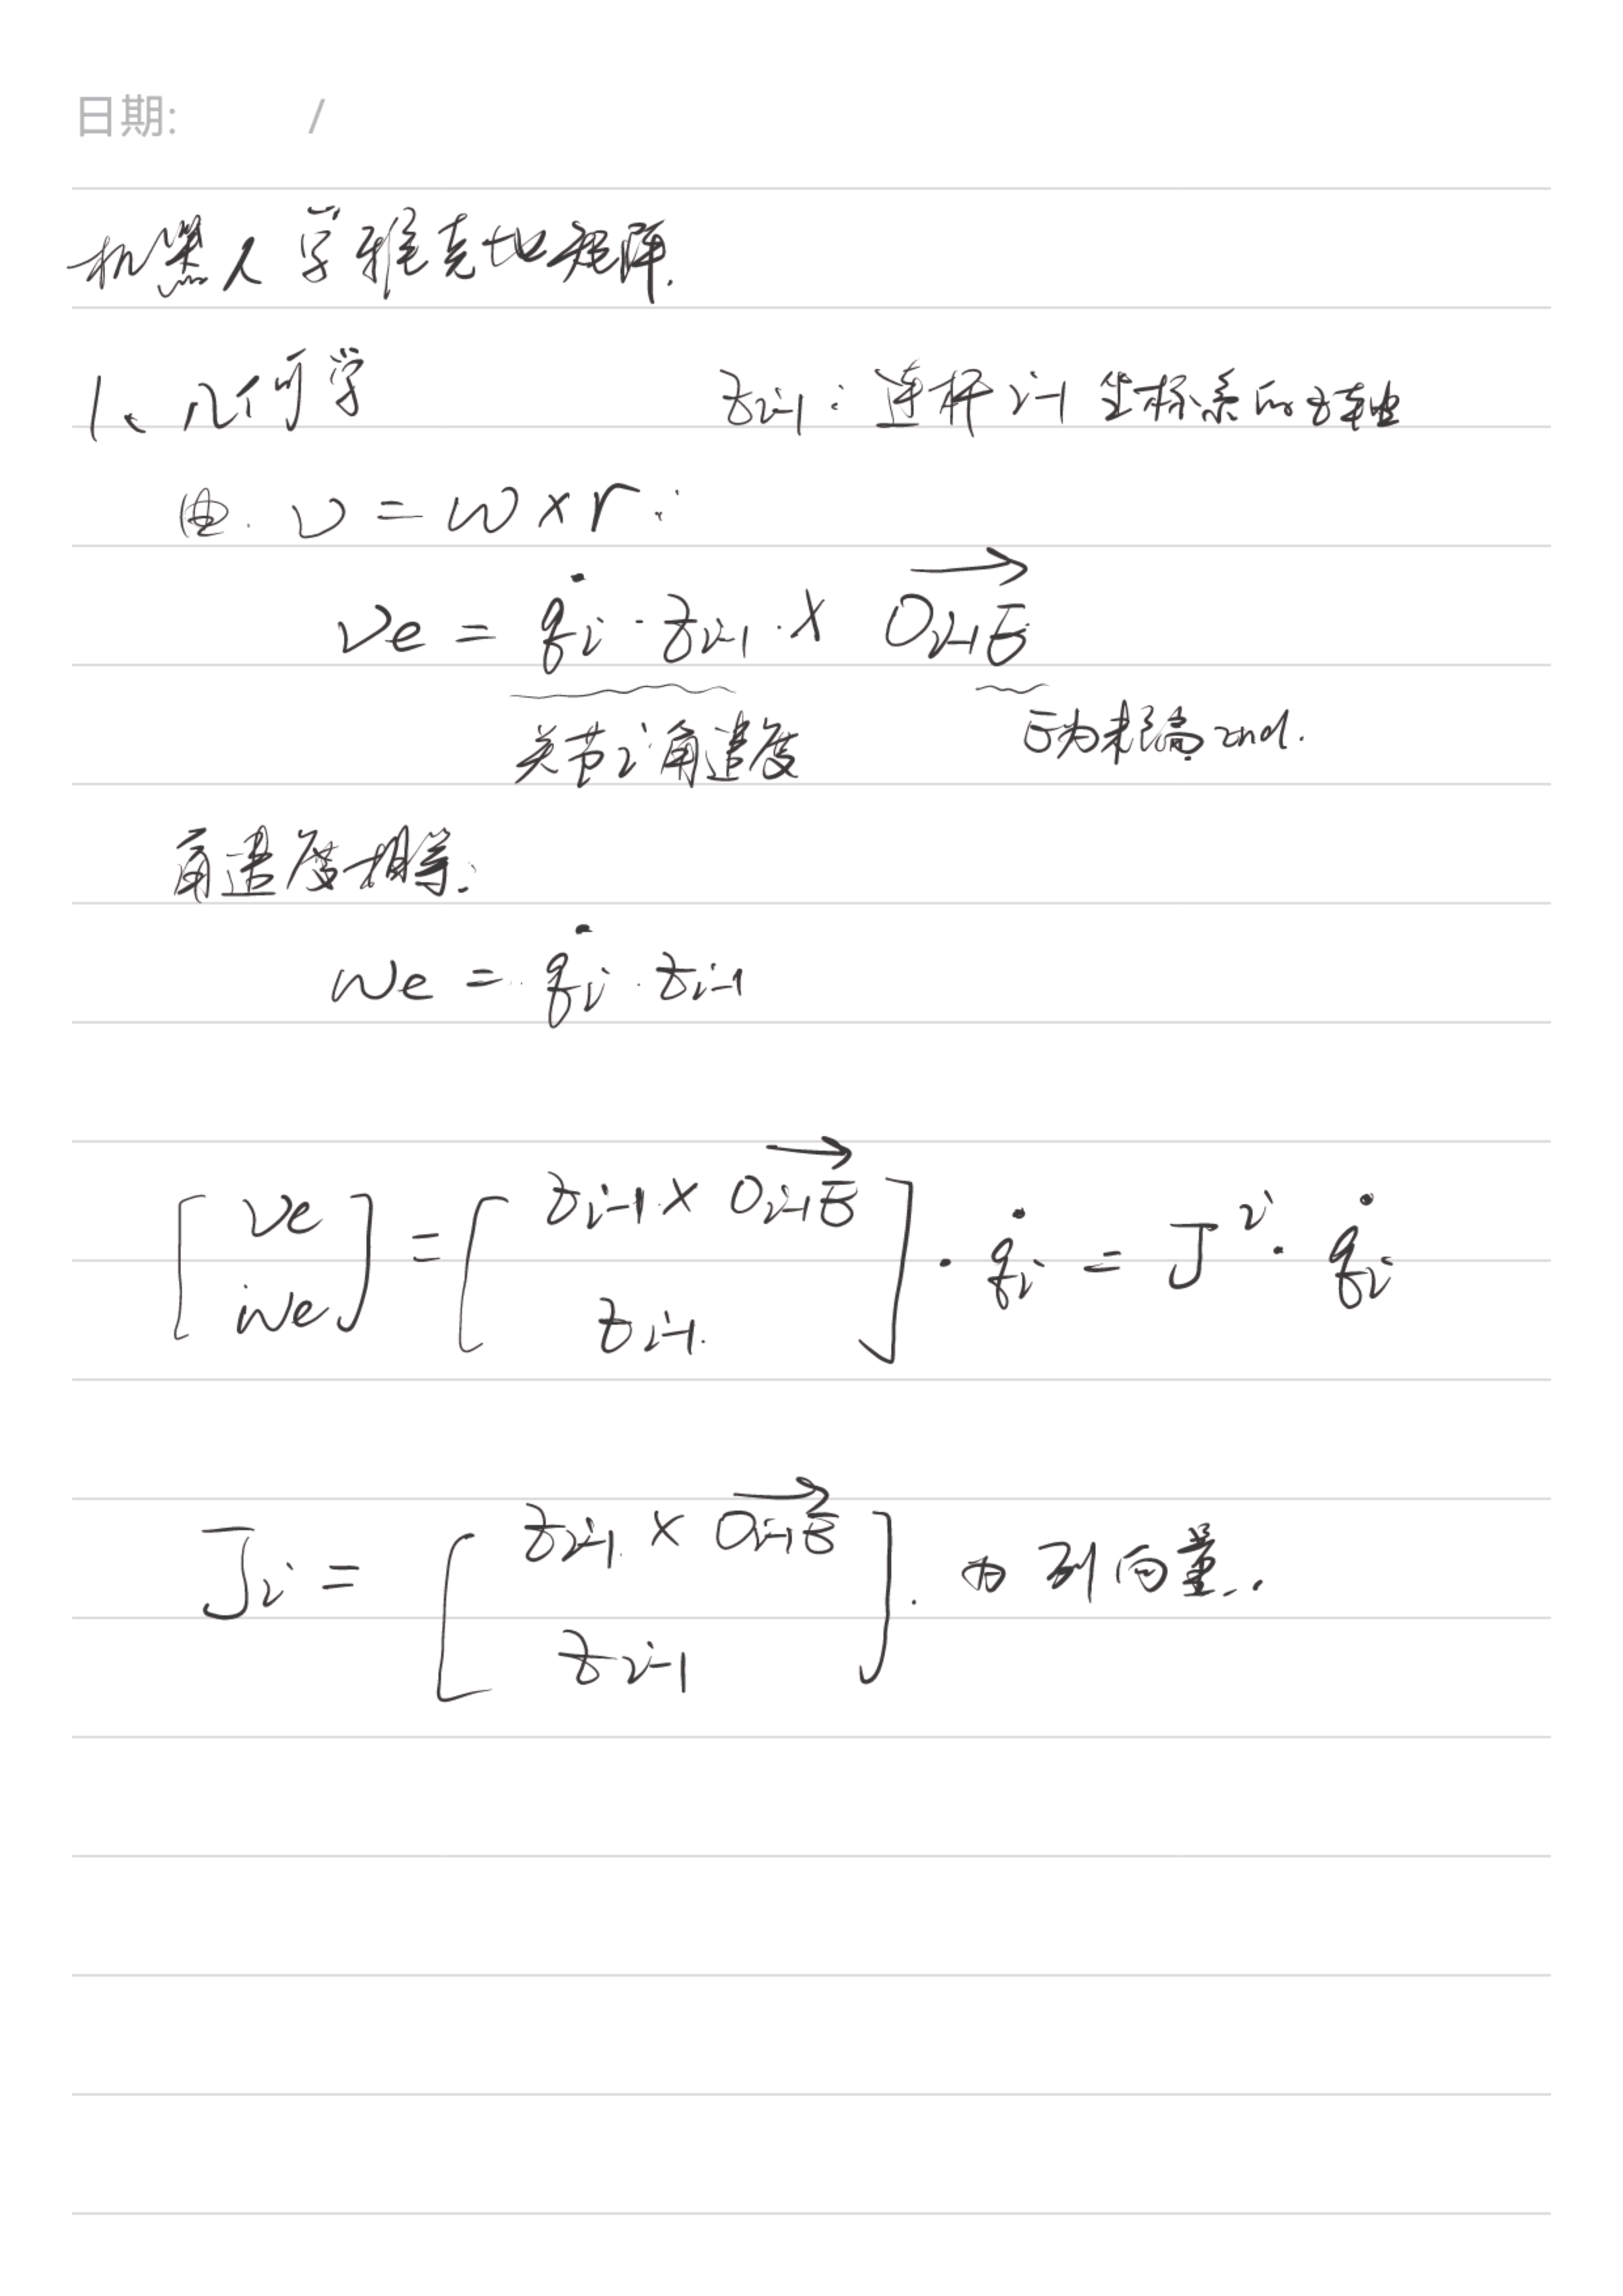 日期: /
机器人学雅克地矩阵.
1、几何学 z_{i-1}: 连杆 i-1 坐标系的z轴
由. v = w × r :
v_e = \dot{q}_i · z_{i-1} · × \overrightarrow{O_{i-1}E}
关节i角速度 E为末端end.
角速度相等.
w_e = \dot{q}_i · z_{i-1}
[v_e; w_e] = [z_{i-1} × \overrightarrow{O_{i-1}E}; z_{i-1}] · \dot{q}_i = J^i · \dot{q}_i
J_i = [z_{i-1} × \overrightarrow{O_{i-1}E}; z_{i-1}] . 为列向量.